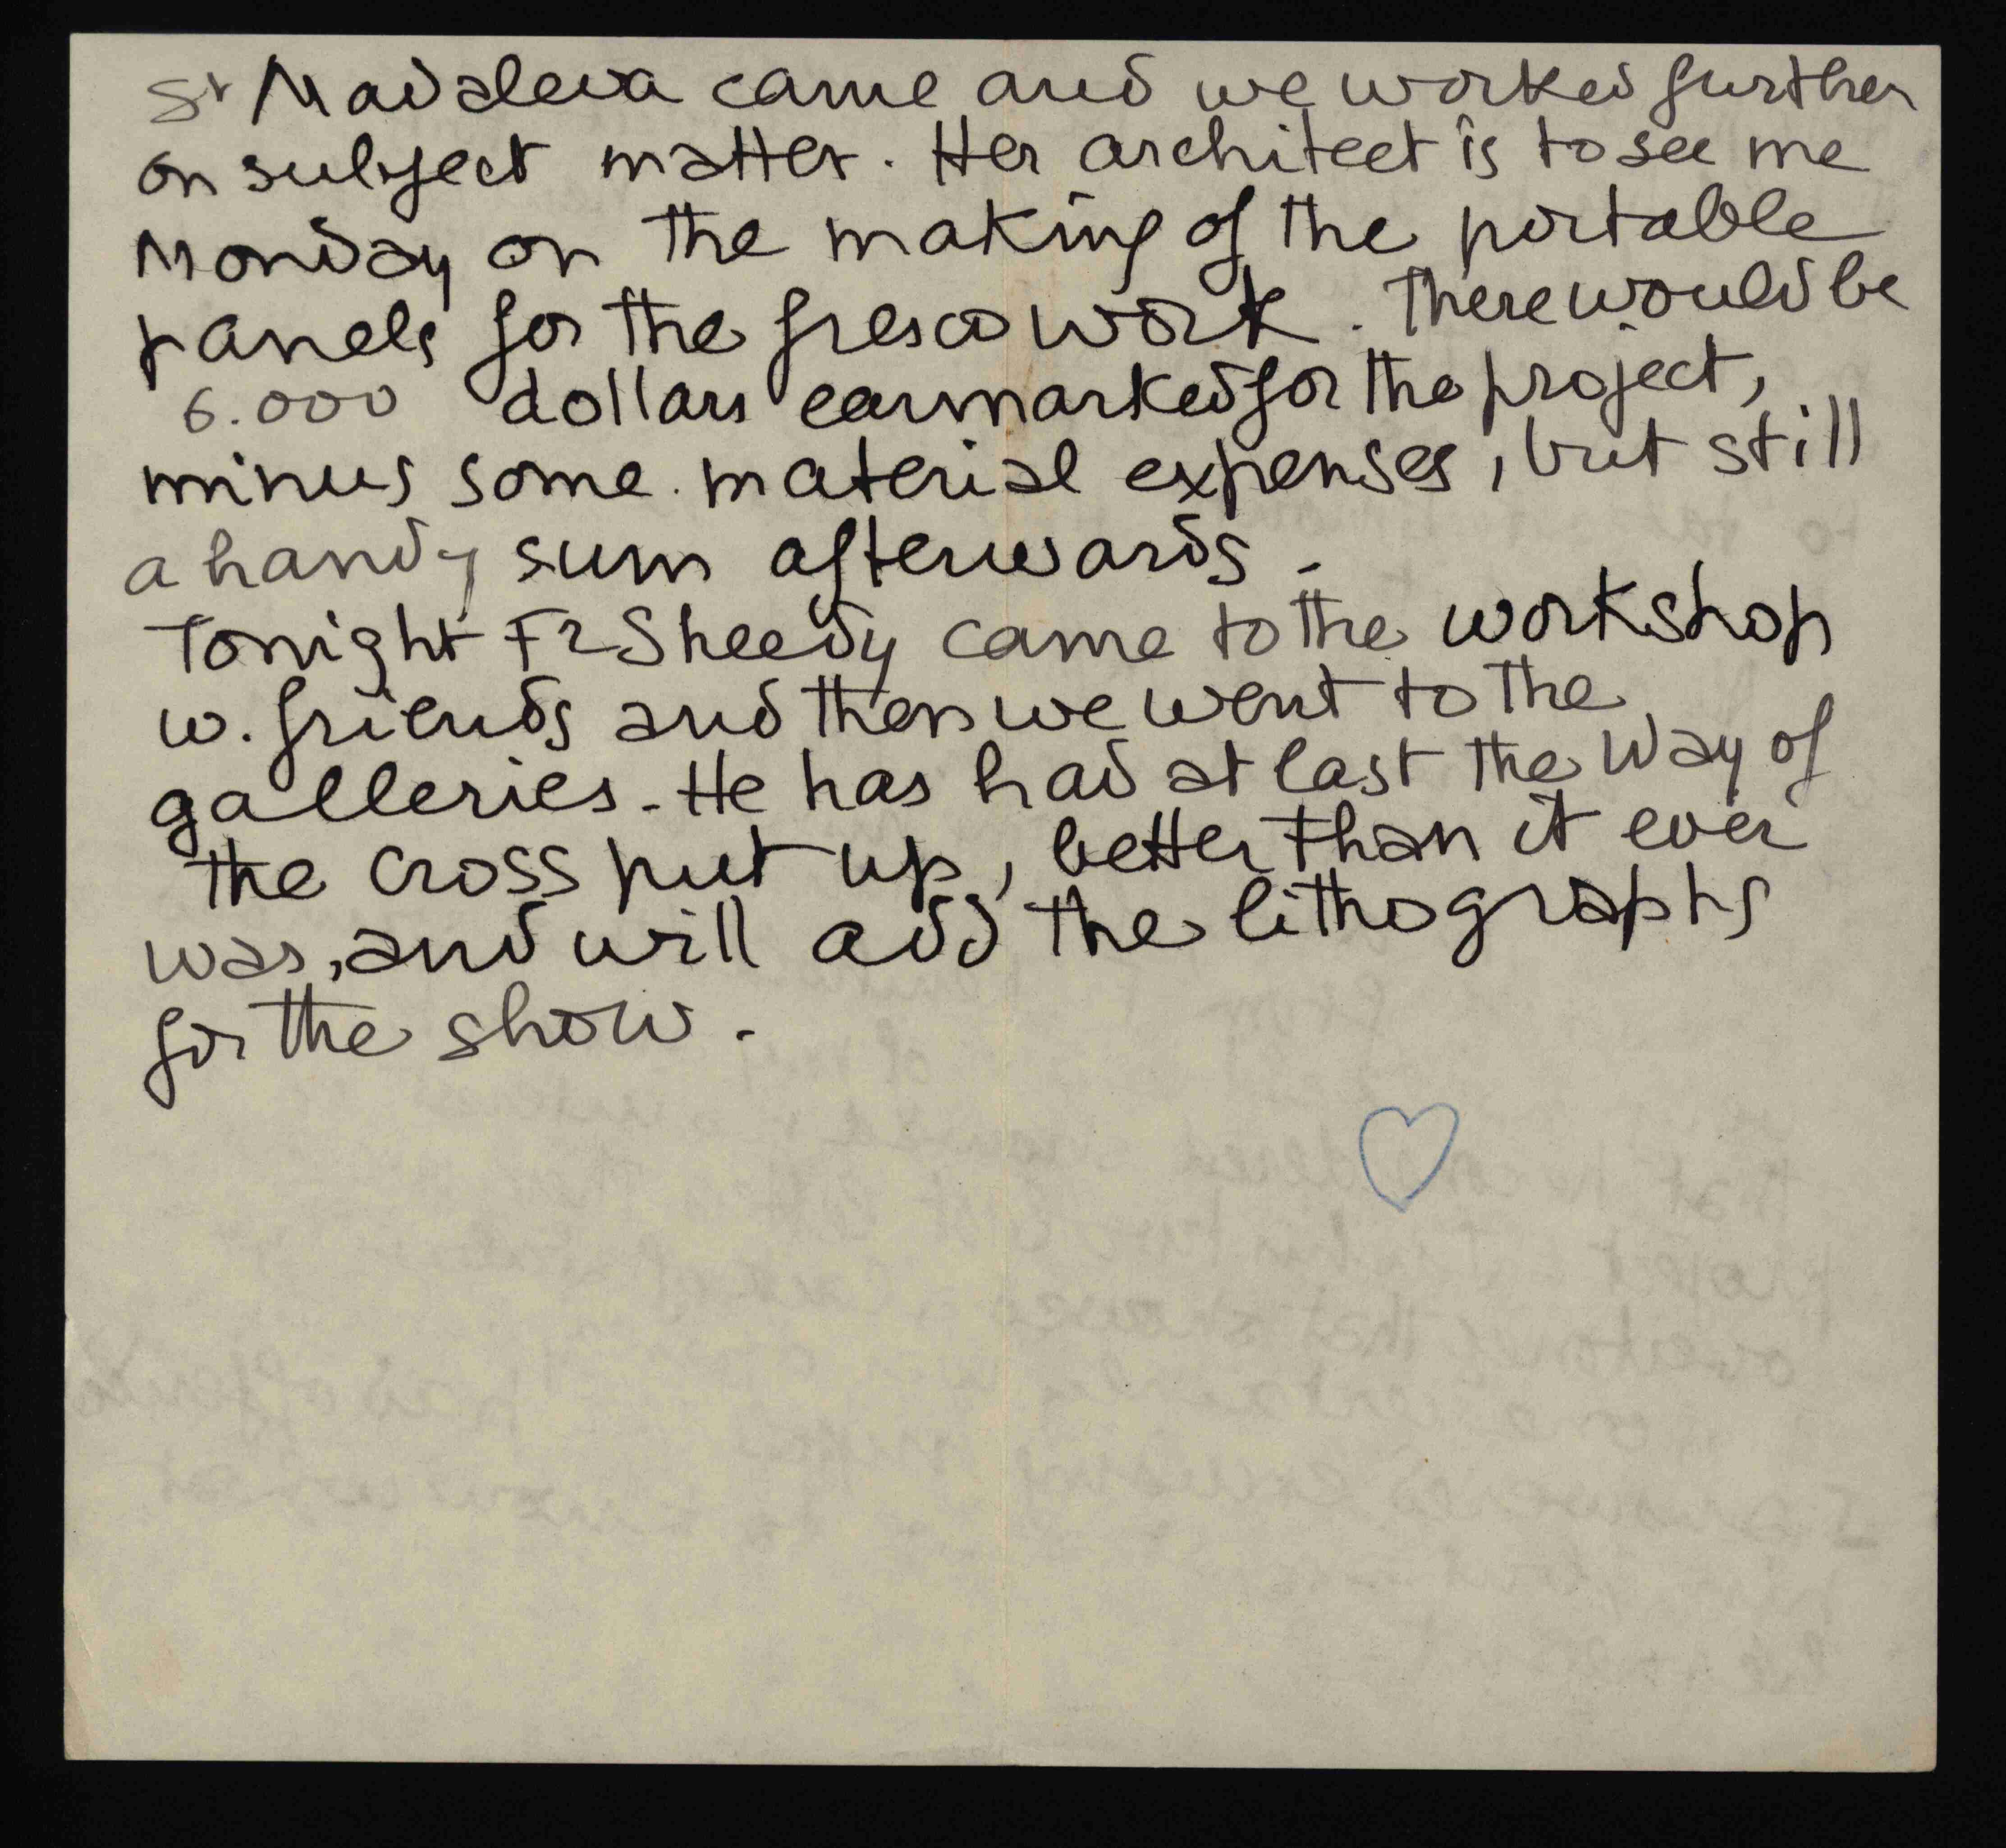 Sr Madaleva came and we worked further
on subject matter. Her architect is to see me
Monday on the making of the portable
panels for the fresco work. There would be
6.000 dollars earmarked for the project,
minus some material expenses, but still
a handy sum afterwards.
Tonight Fr Sheedy came to the workshop
w. friends and then we went to the
galleries. He has had at last the Way of
the Cross put up, better than it ever
was, and will add the lithographs
for the show.